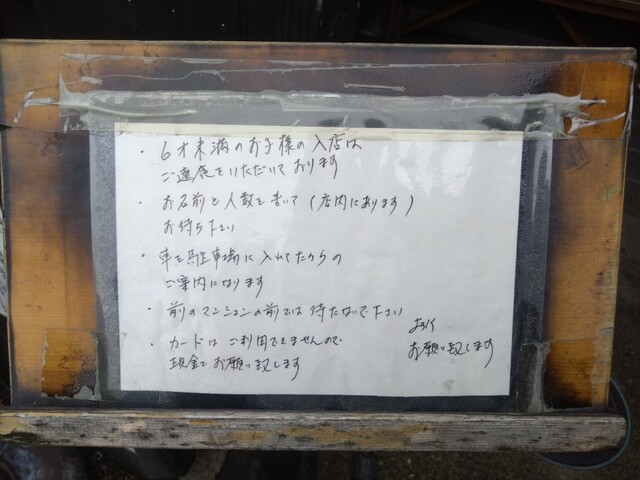 ・6才未満のお子様の入店は
ご遠慮をいただいております
・お名前と人数を書いて(店内にあります)
お待ち下さい
・車を駐車場に入れてからの
ご案内になります
・前のマンションの前では待たないで下さい
・カードはご利用できませんので
現金でお願い致します
お願い致します